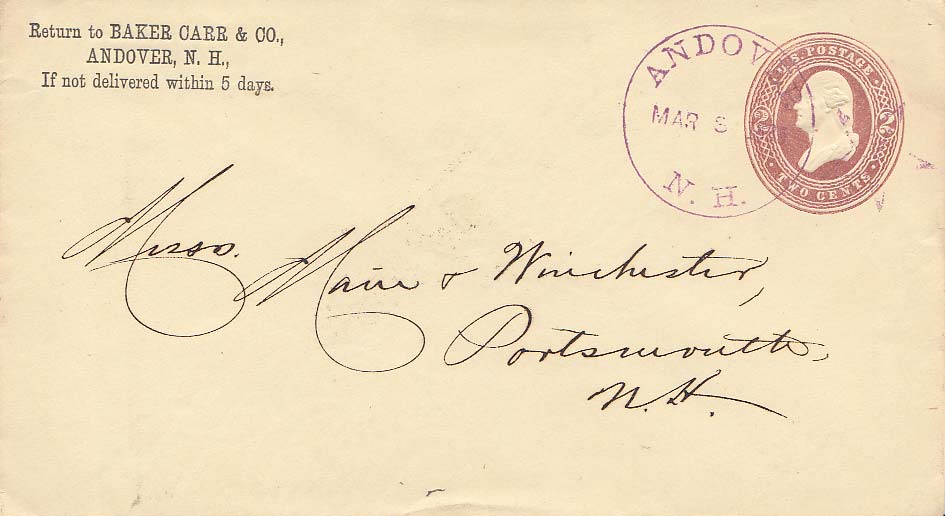 Return to BAKER CARR & CO.,
ANDOVER, N. H.,
If not delivered within 5 days.
ANDOV
MAR 8
N. H.
U.S. POSTAGE
2 2
TWO CENTS
Messrs.
& Winchester,
Portsmouth,
N.H.